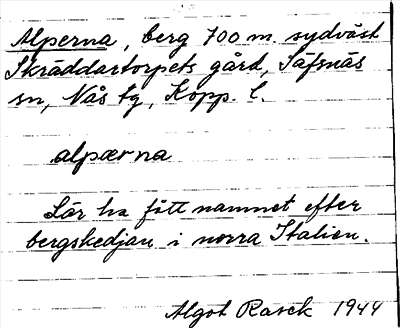 Alperna, berg 700 m. sydväst
Skräddartorpets gård, Säfsnäs
sn, Nås tg, Kopp. l.
alpærna
Lär ha fått namnet efter
bergskedjan i norra Italien.
Algot Rasck 1944